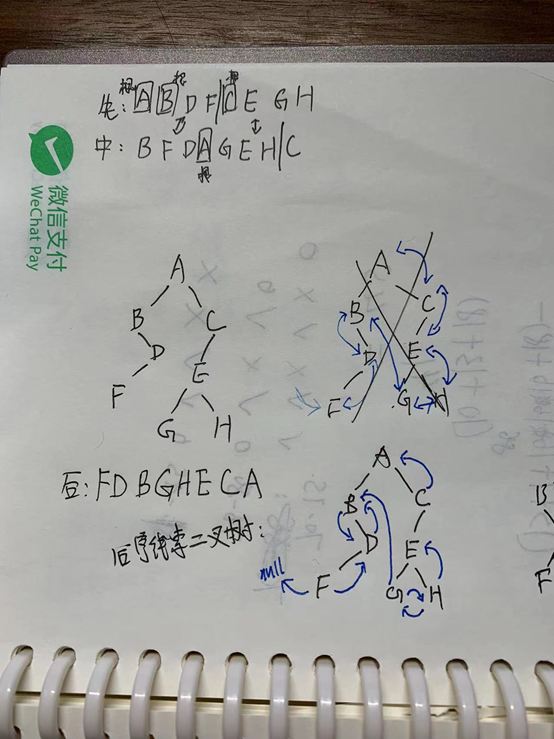 根 根 根
先: A B D F / C E G H
中: B F D A G E H / C
根
微信支付
WeChat Pay
A
B C
D E
F G H
A
B C
D E
F G H
后: F D B G H E C A
后序线索二叉树:
A
B C
D E
null F G H
B
F